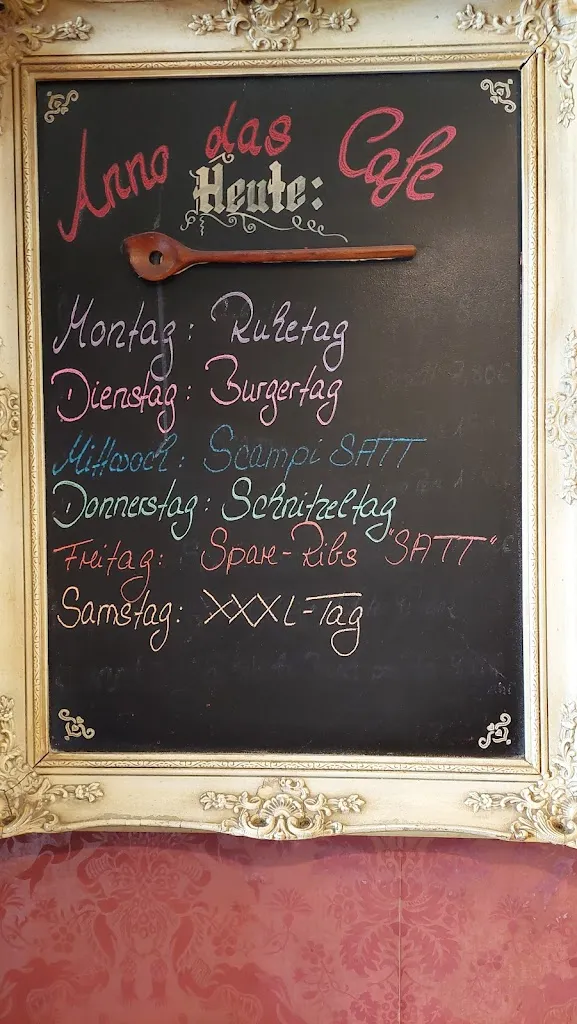 Anno das Cafe
Heute:
Montag: Ruhetag
Dienstag: Burgertag
Mittwoch: Scampi SATT
Donnerstag: Schnitzeltag
Freitag: Spare-Ribs "SATT"
Samstag: XXXL-Tag